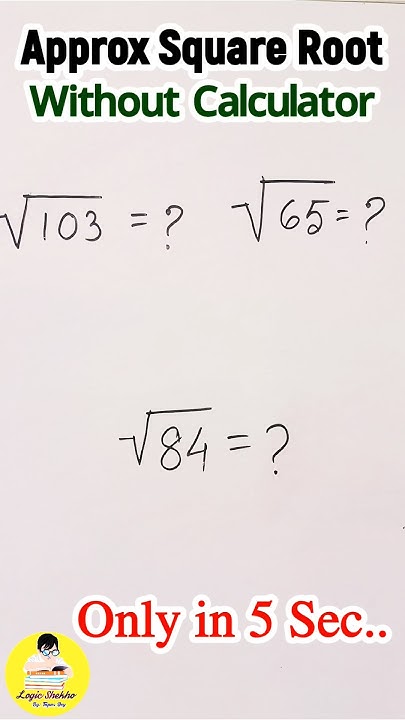 Approx Square Root
Without Calculator
√103 = ?
√65 = ?
√84 = ?
Only in 5 Sec..
Logic Shekho
By: Tapas Dey